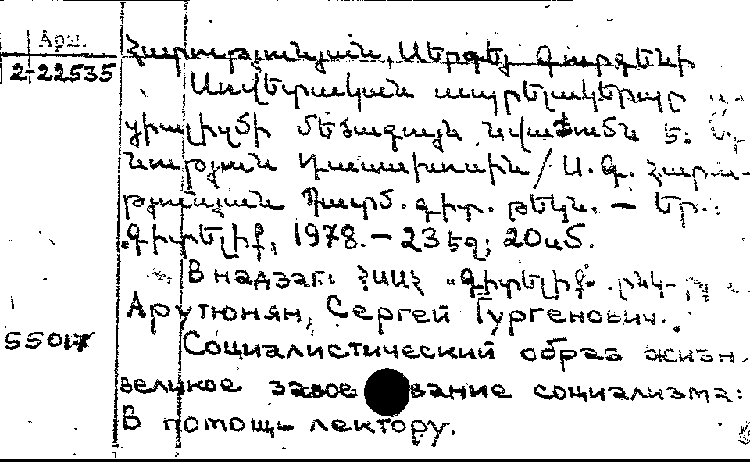 Арш.
Հարությունյան, Սերգեյ Գուրգենի
2-22535
Սովետական ապրելակերպը
մեծագույն նվաճումն է:
դասախոսին / Ս. Գ. Հարու-
թյունյան Պատմ. գիտ. թեկն. – Եր.:
Գիտելիք, 1978. – 23 էջ; 20 սմ.
В надзаг: ՀՍՍՀ «Գիտելիք» ընկ-
Арутюнян, Сергей Гургенович.
55017
Социалистический образ жизн
великое завое вание социализма:
В помощь лектору.